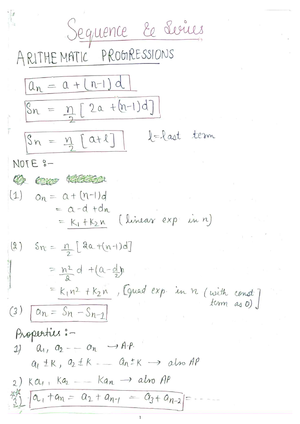 Sequence & Series
ARITHEMATIC PROGRESSIONS
an = a + (n-1) d
Sn = n/2 [ 2a + (n-1)d ]
Sn = n/2 [ a + l ]    l = last term
NOTE :-
(1) an = a + (n-1)d
= a - d + dn
= K1 + K2 n (linear exp in n)
(2) Sn = n/2 [ 2a + (n-1)d ]
= n²/2 d + (a - d/2)n
= K1n² + K2n , [quad exp in n (with const term as 0)]
(3) an = Sn - Sn-1
Properties :-
1) a1, a2 ---- an → AP
a1 ± K, a2 ± K ---- an ± K → also AP
2) Ka1, Ka2 ---- Kan → also AP
3) a1 + an = a2 + an-1 = a3 + an-2 = ----
1